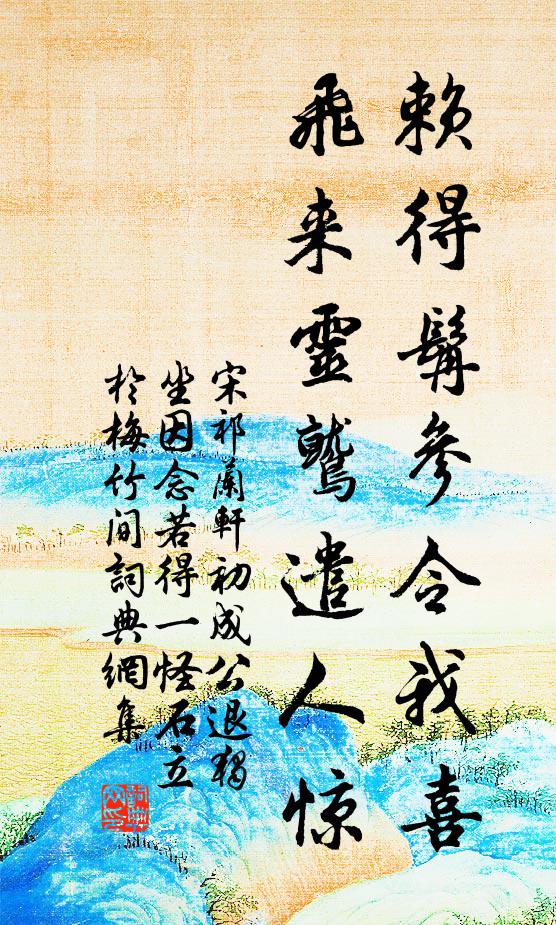 赖得髯参令我喜
飛来靈鷲遣人惊
宋祁蘭軒初成公退獨
坐因念若得一怪石立
於梅竹间詞典網集